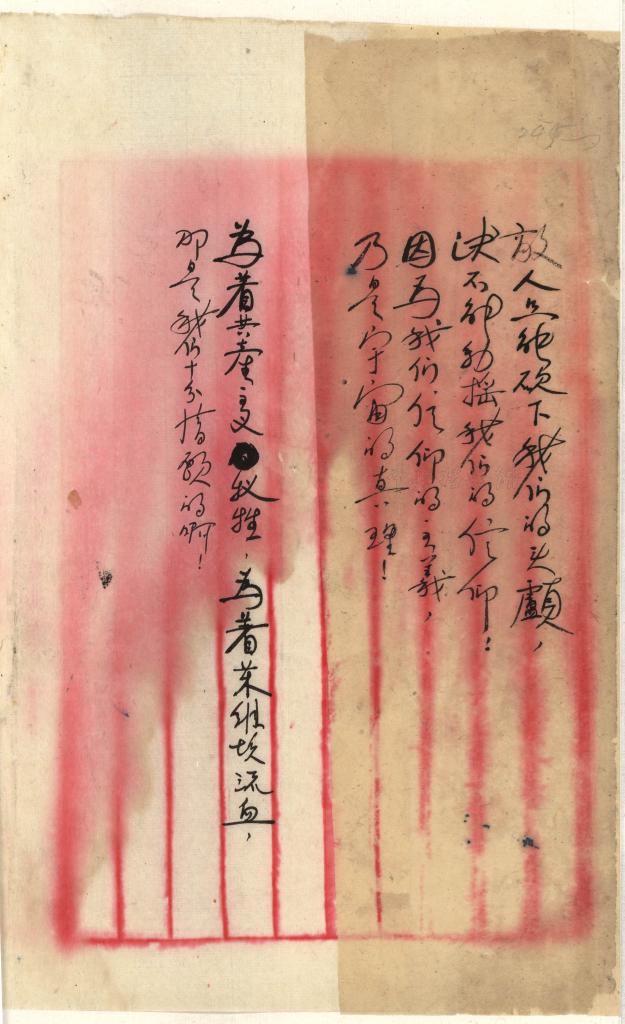 敌人只能砍下我们的头颅，
决不能动摇我们的信仰！
因为我们信仰的主义，
乃是宇宙的真理！
为着共产主义牺牲，为着苏维埃流血，
那是我们十分情愿的啊！